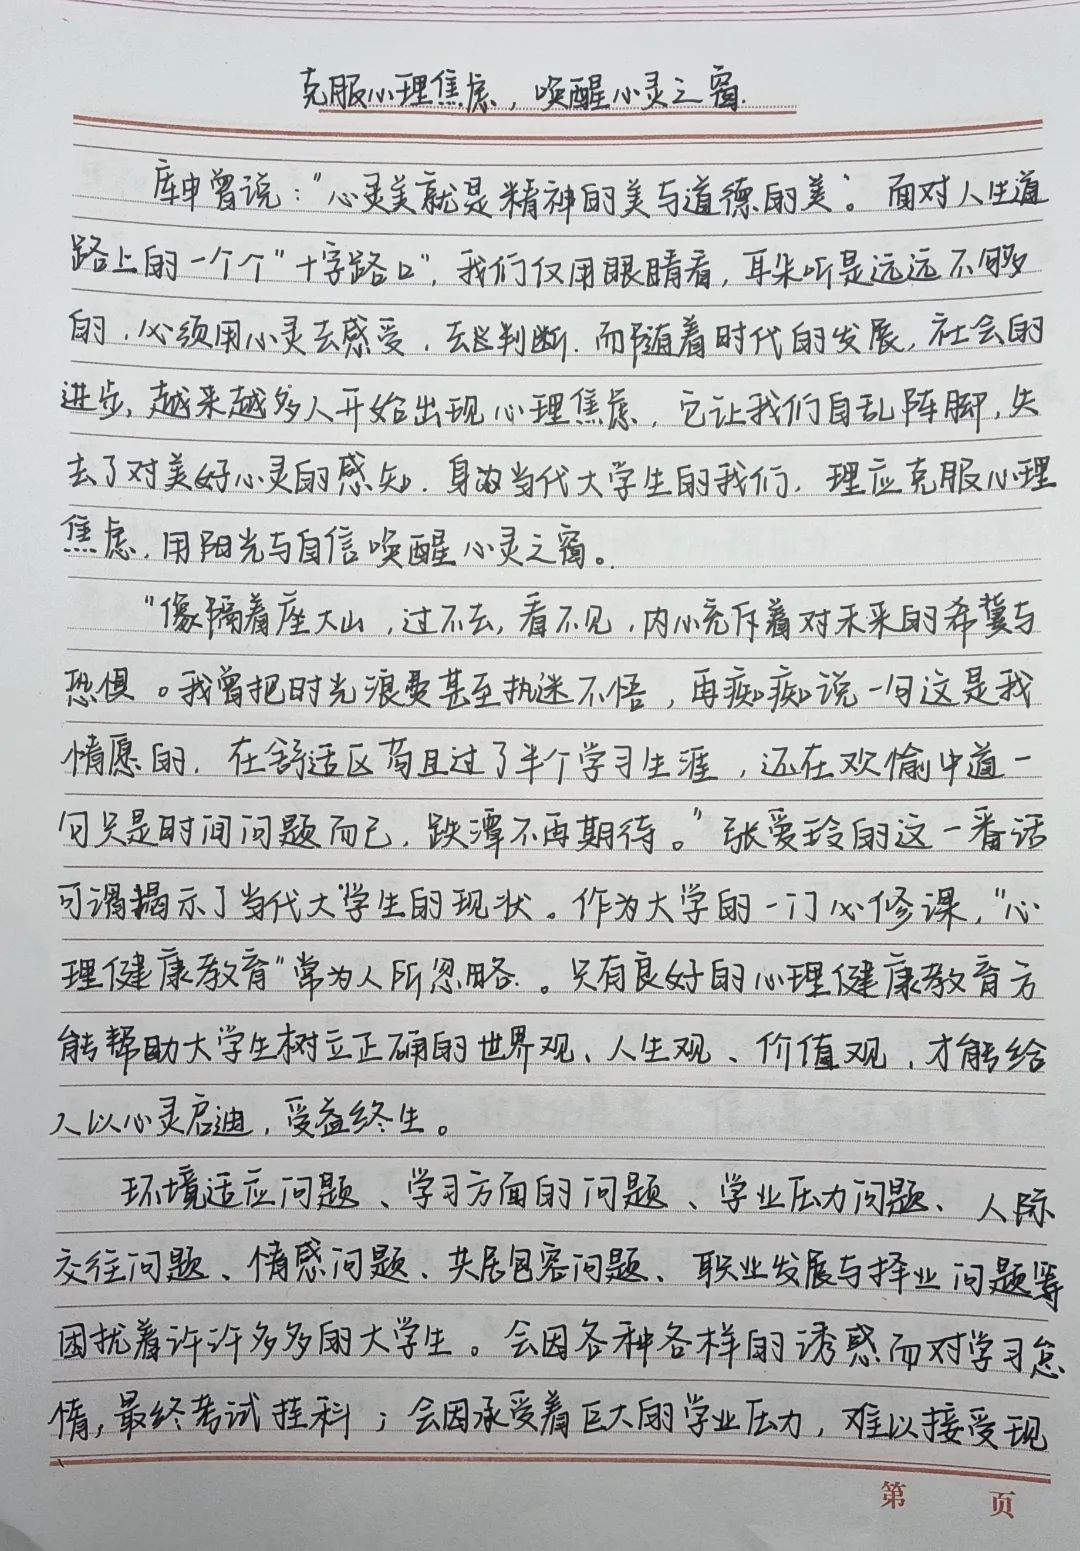 克服心理焦虑，唤醒心灵之窗.
库申曾说："心灵美就是精神的美与道德的美"。面对人生道
路上的一个个"十字路口"，我们仅用眼睛看，耳朵听是远远不够
的，必须用心灵去感受，去判断.而随着时代的发展，社会的
进步，越来越多人开始出现心理焦虑，它让我们自乱阵脚，失
去了对美好心灵的感知.身为当代大学生的我们，理应克服心理
焦虑，用阳光与自信唤醒心灵之窗。
"像隔着座大山，过不去，看不见，内心充斥着对未来的希冀与
恐惧。我曾把时光浪费甚至执迷不悟，再痴痴说一句这是我
情愿的，在舒适区苟且过了半个学习生涯，还在欢愉中道一
句只是时间问题而已，跌潭不再期待。"张爱玲的这一番话
可谓揭示了当代大学生的现状。作为大学的一门必修课，"心
理健康教育"常为人所忽略.。只有良好的心理健康教育方
能帮助大学生树立正确的世界观、人生观、价值观，才能给
人以心灵启迪，受益终生。
环境适应问题、学习方面的问题、学业压力问题、人际
交往问题、情感问题、共居包容问题、职业发展与择业问题等
困扰着许许多多的大学生。会因各种各样的诱惑而对学习怠
惰，最终考试挂科；会因承受着巨大的学业压力，难以接受现
第 页